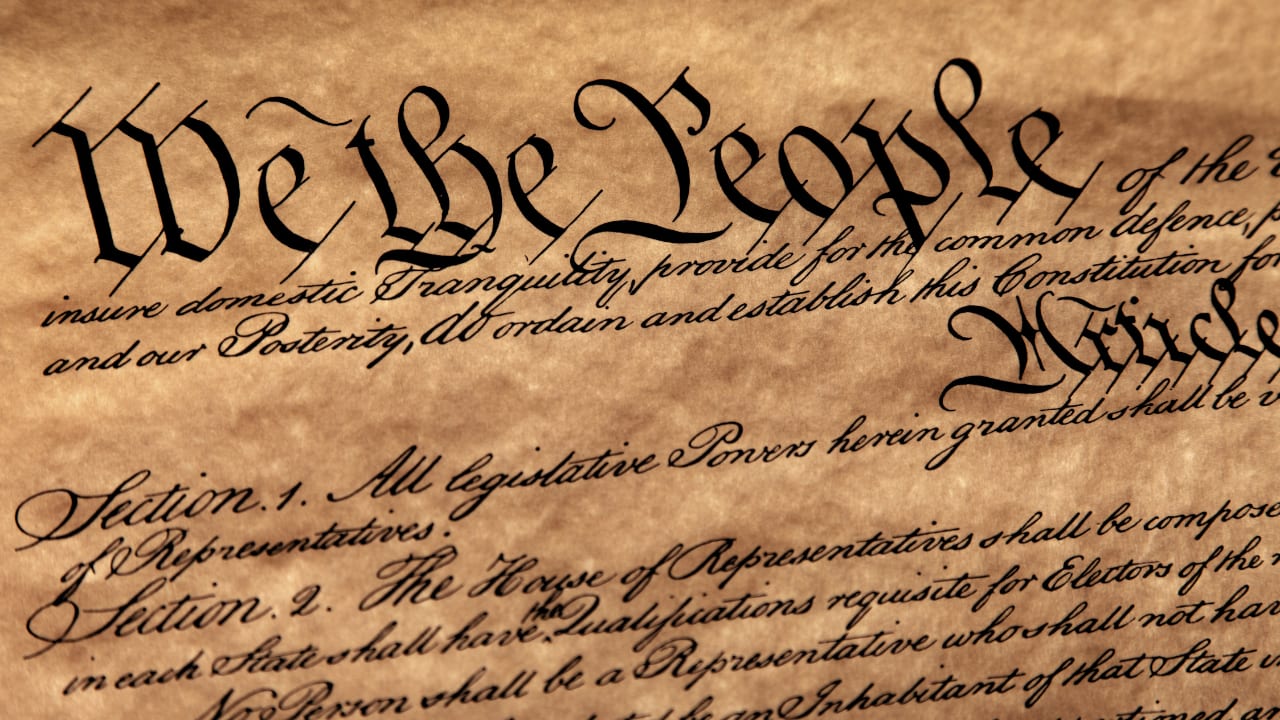 We the People of the
insure domestic Tranquility, provide for the common defence,
and our Posterity, do ordain and establish this Constitution for
Article
Section. 1. All legislative Powers herein granted shall be
of Representatives.
Section. 2. The House of Representatives shall be compose
in each State shall have the Qualifications requisite for Electors of the
No Person shall be a Representative who shall not hav
be an Inhabitant of that State